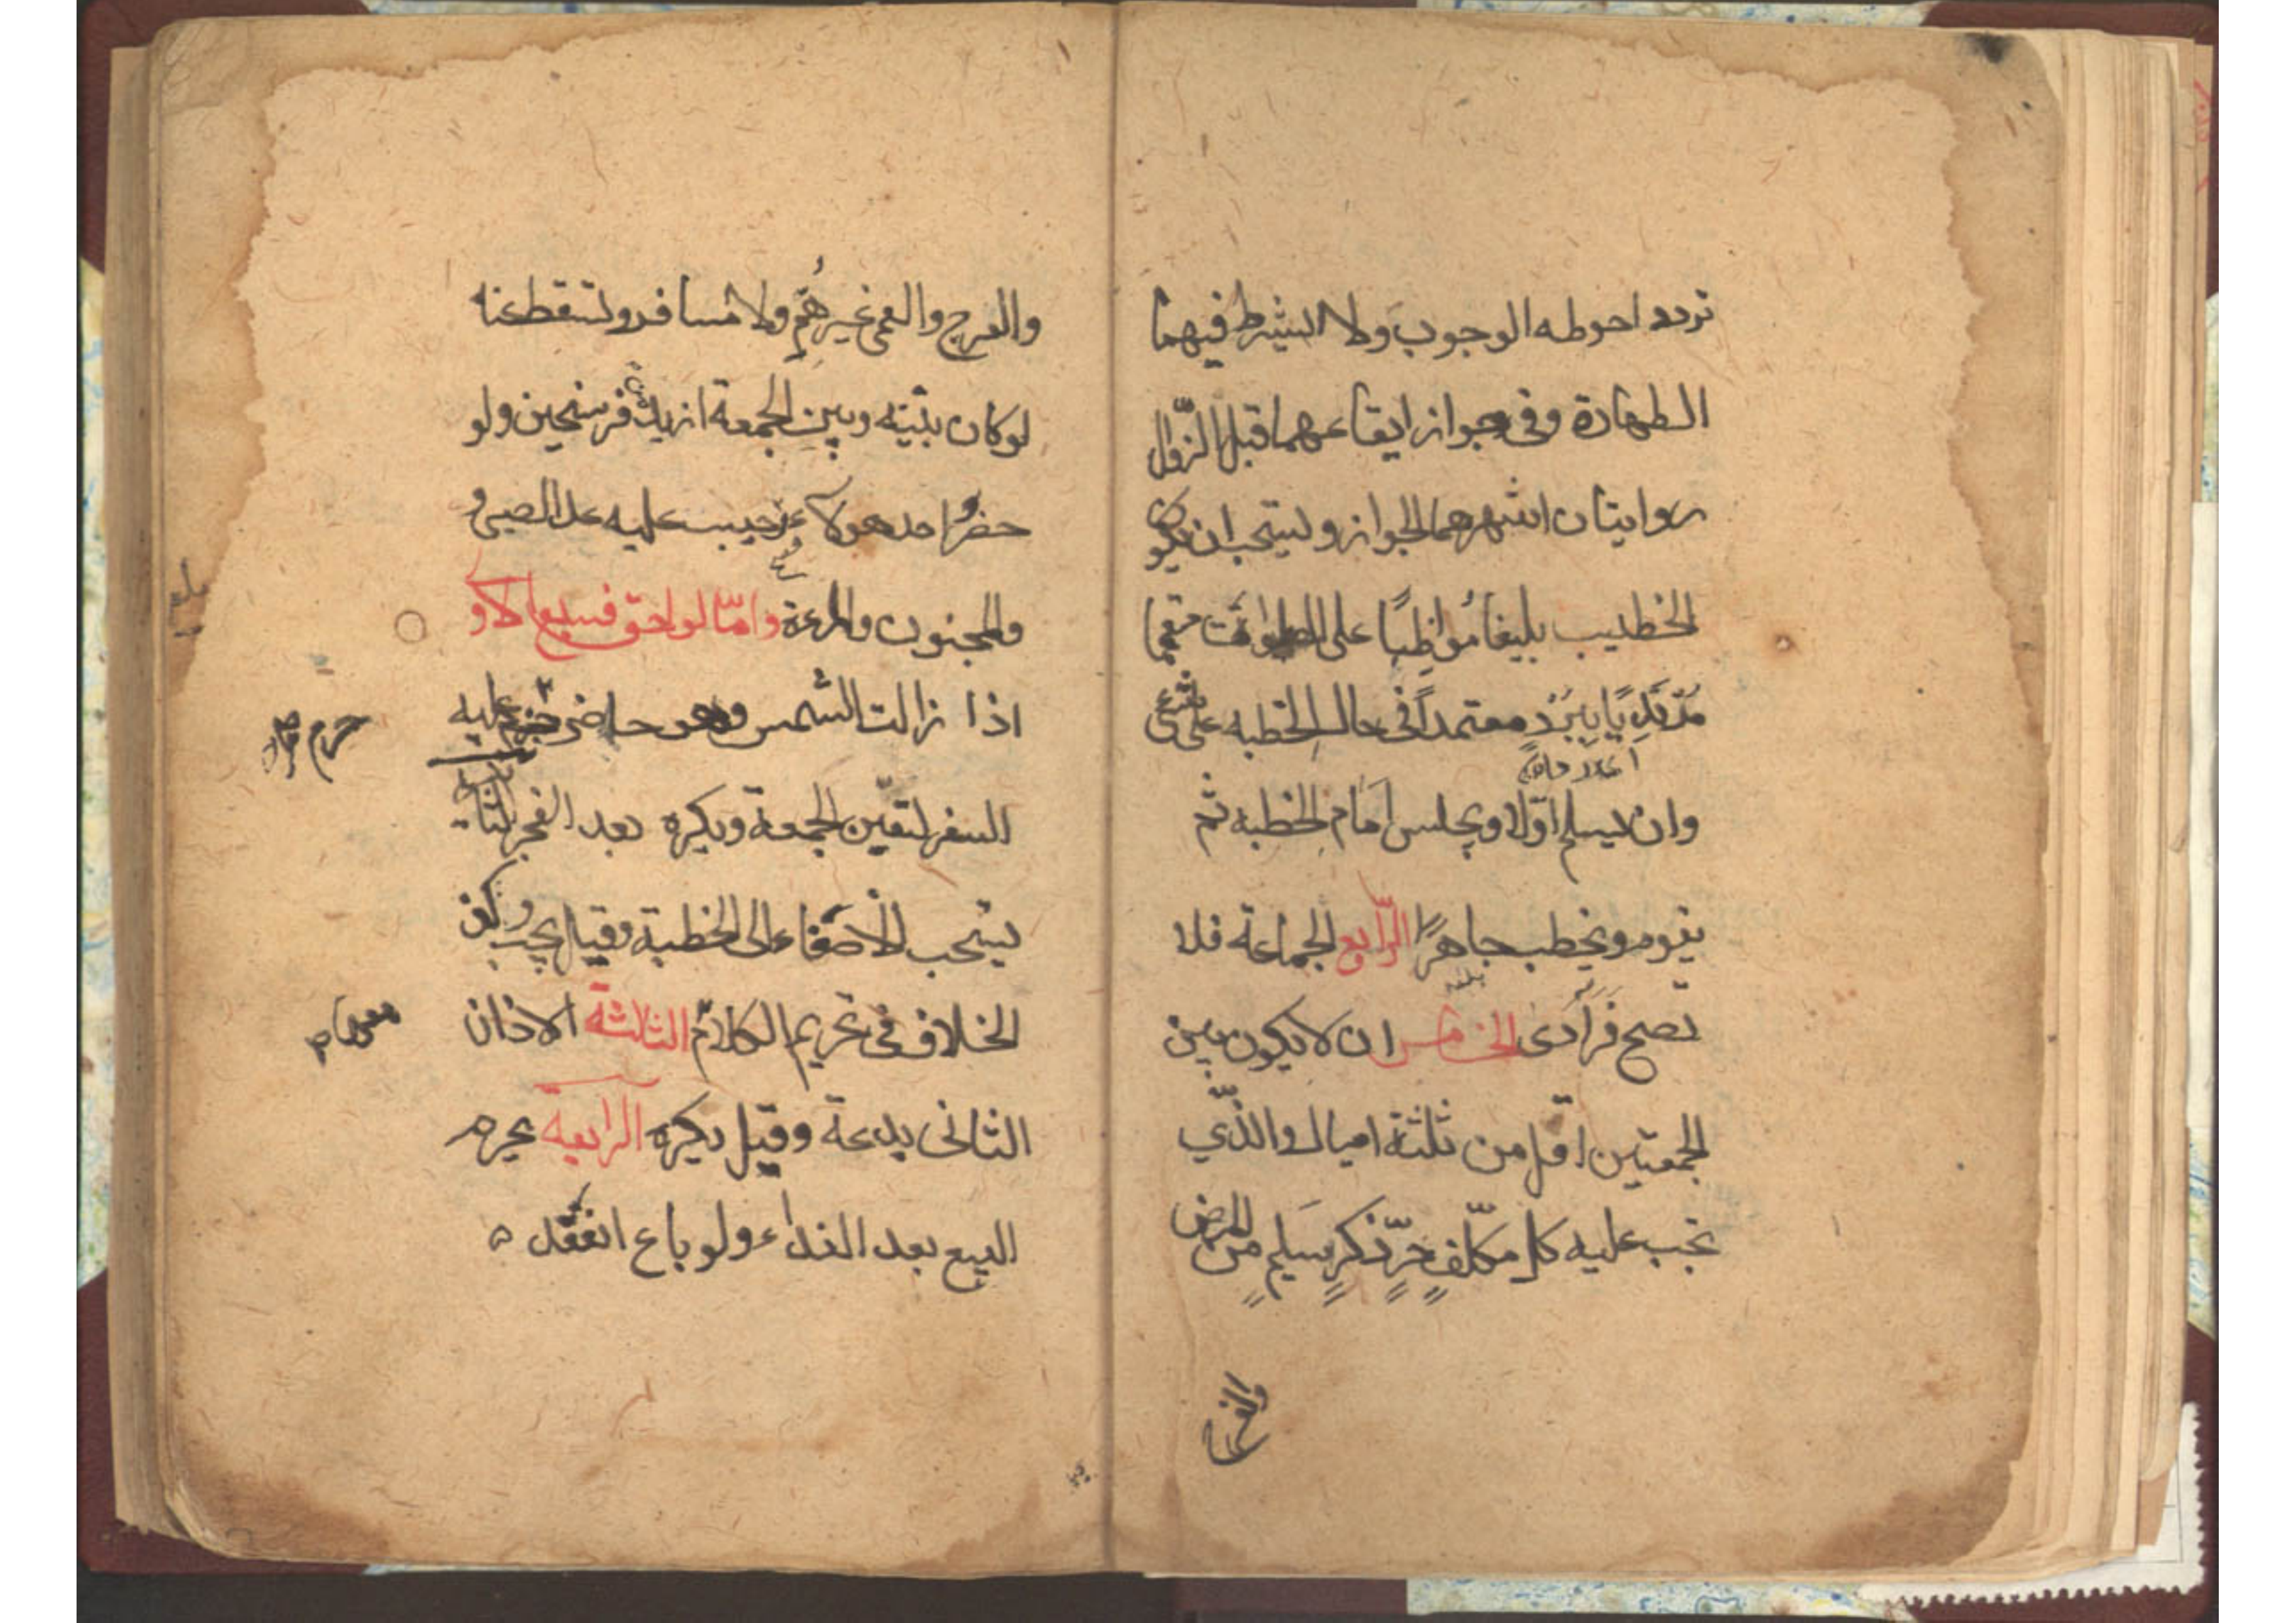 تردد احوطه الوجوب ولا يشترط فيهما
الطهارة وفى جواز ايقاعهما قبل الزّوال
روايتان اشهرهما الجواز ويستحب ان يكون
الخطيب بليغا مُواظبًا على الصلوات متعمما
مُرْتَدِيًا بِبُرْدٍ معتمداً فى حال الخطبه على شىء
وان يسلم اوّلا ويجلس اَمَام الخطبه ثم
يقوم ويخطب جاهرًا الرّابع الجماعة فلا
تصح فُرَادى الخامس ان لا يكون بين
الجمعتين اقل من ثلثة اميال والذّي
تجب عليه كل مكلّفٍ حرٍّ ذكرٍ سَليمٍ من المرض
والعرج والعمى غير هِمٍّ ولا مسافر وتسقط عنه
لو كان بينه وبين الجمعة ازيد من فرسخين ولو
حضر احد هولاء وجبت عليه عدا الصبى و
والمجنون والمرءة وامّا لواحق فسبع الاو
اذا زالت الشمس وهو حاضر حرم عليه
السفر لتعيّن الجمعة ويكره بعد الفجر الثانية
يستحب الاصغاء الى الخطبة وقيل يجب وكذا
الخلاف فى تحريم الكلام الثالثة الاذان
الثانى بدعة وقيل يكره الرابعة يحرم
البيع بعد النداء ولو باع انعقد
حرم
والعرج